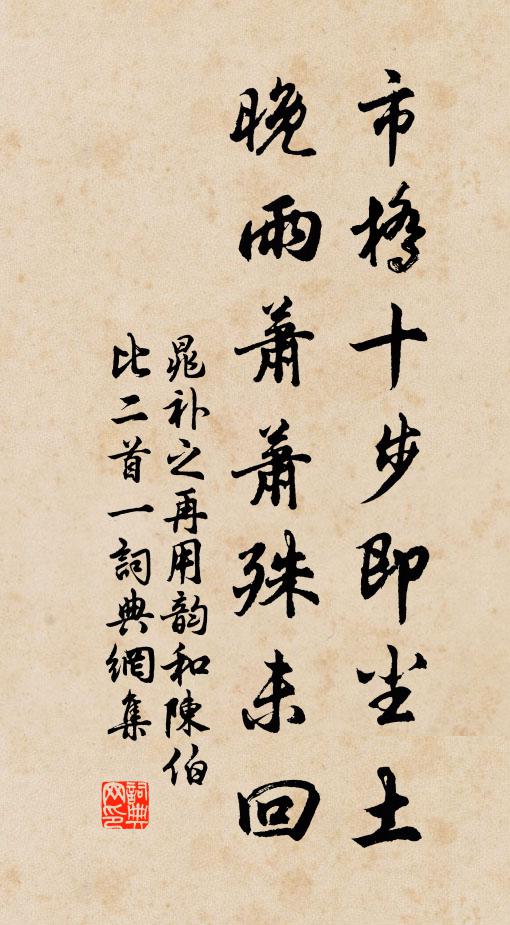 市橋十步即尘土
晚雨蕭蕭殊未回
晁补之再用韵和陳伯
比二首一詞典網集
詞典
网印